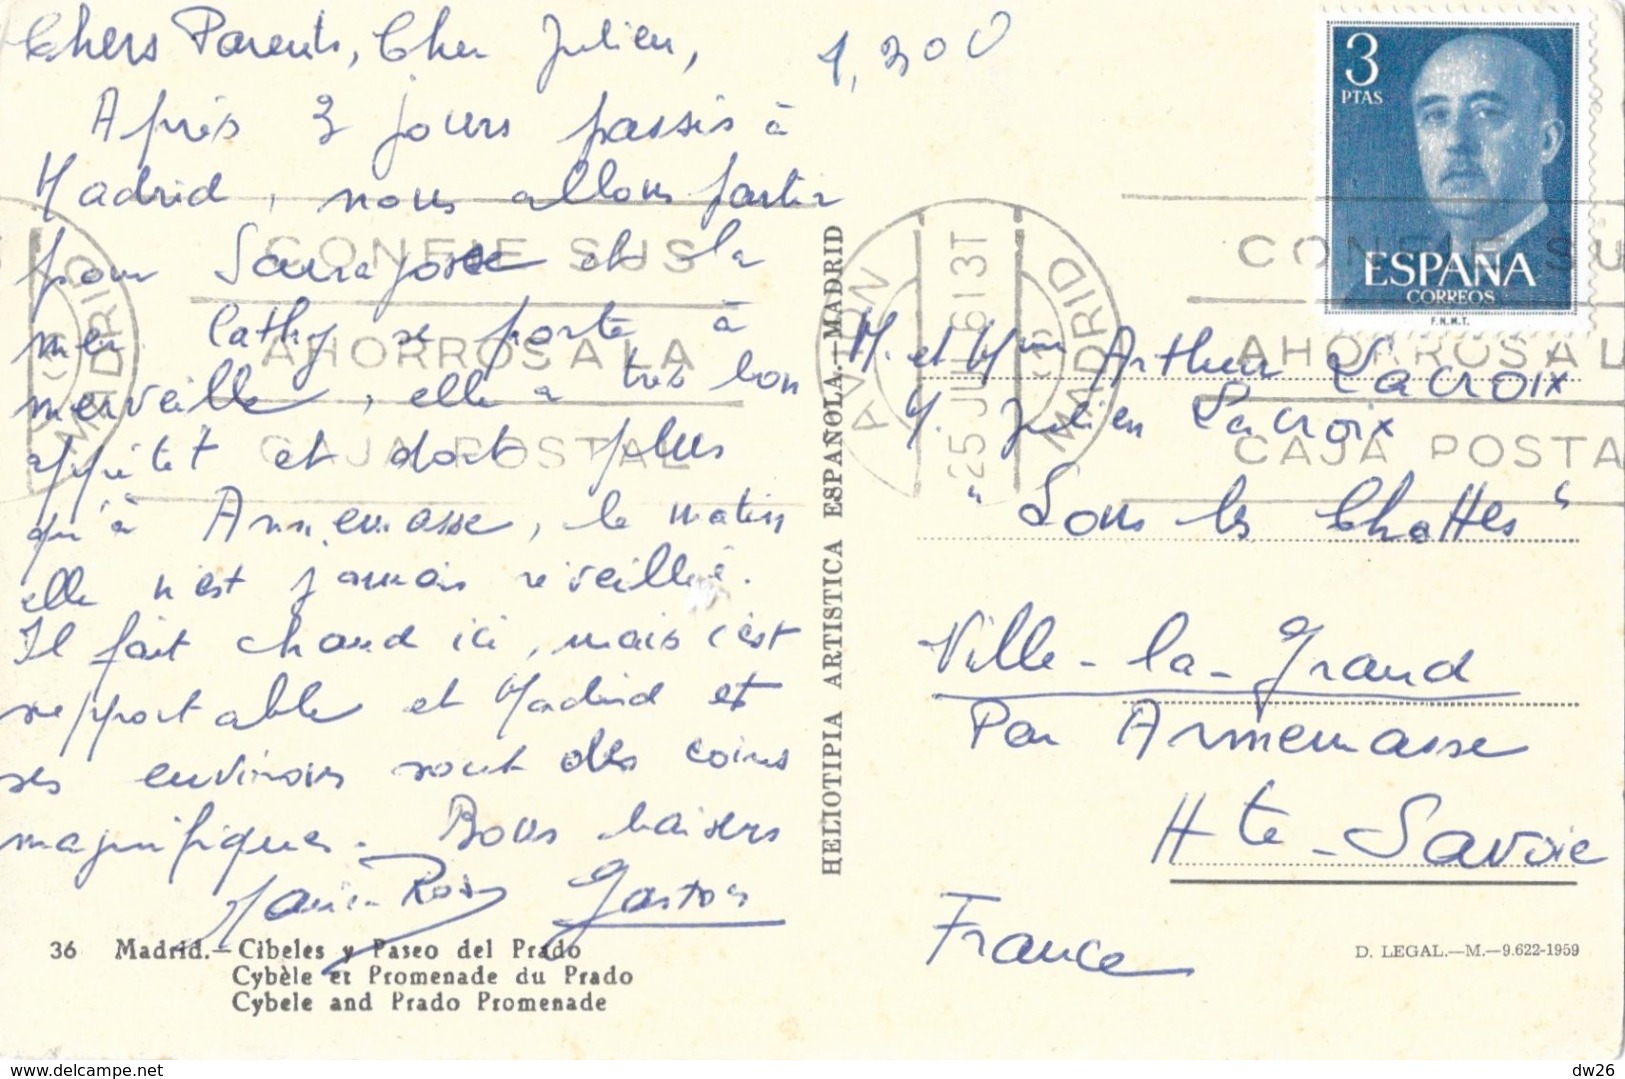 Chers Parents, Cher Julien,
Après 3 jours passés à
Madrid, nous allons partir
pour Sarragosse et la
mer. Cathy se porte à
merveille, elle a très bon
appétit et dort plus
qu'à Annemasse, le matin
elle n'est jamais réveillée.
Il fait chaud ici, mais c'est
supportable et Madrid et
ses environs sont des coins
magnifiques. Bons baisers
Gaston
36 Madrid.—Cibeles y Paseo del Prado
Cybèle et Promenade du Prado
Cybele and Prado Promenade
HELIOTIPIA ARTISTICA ESPAÑOLA.—MADRID
1,300
3
PTAS
ESPAÑA
CORREOS
F.N.M.T.
CONFIE SUS
AHORROS A LA
CAJA POSTAL
MADRID
AVION
25 JUL 61 3T
MADRID
(1)
CONFIE SU
AHORROS A L
CAJA POSTA
M. et Mme Arthur Lacroix
M. Julien Lacroix
"Sous les Chattes"
Ville-la-Grand
Par Annemasse
Hte-Savoie
France
D. LEGAL.—M.—9.622-1959
dw26